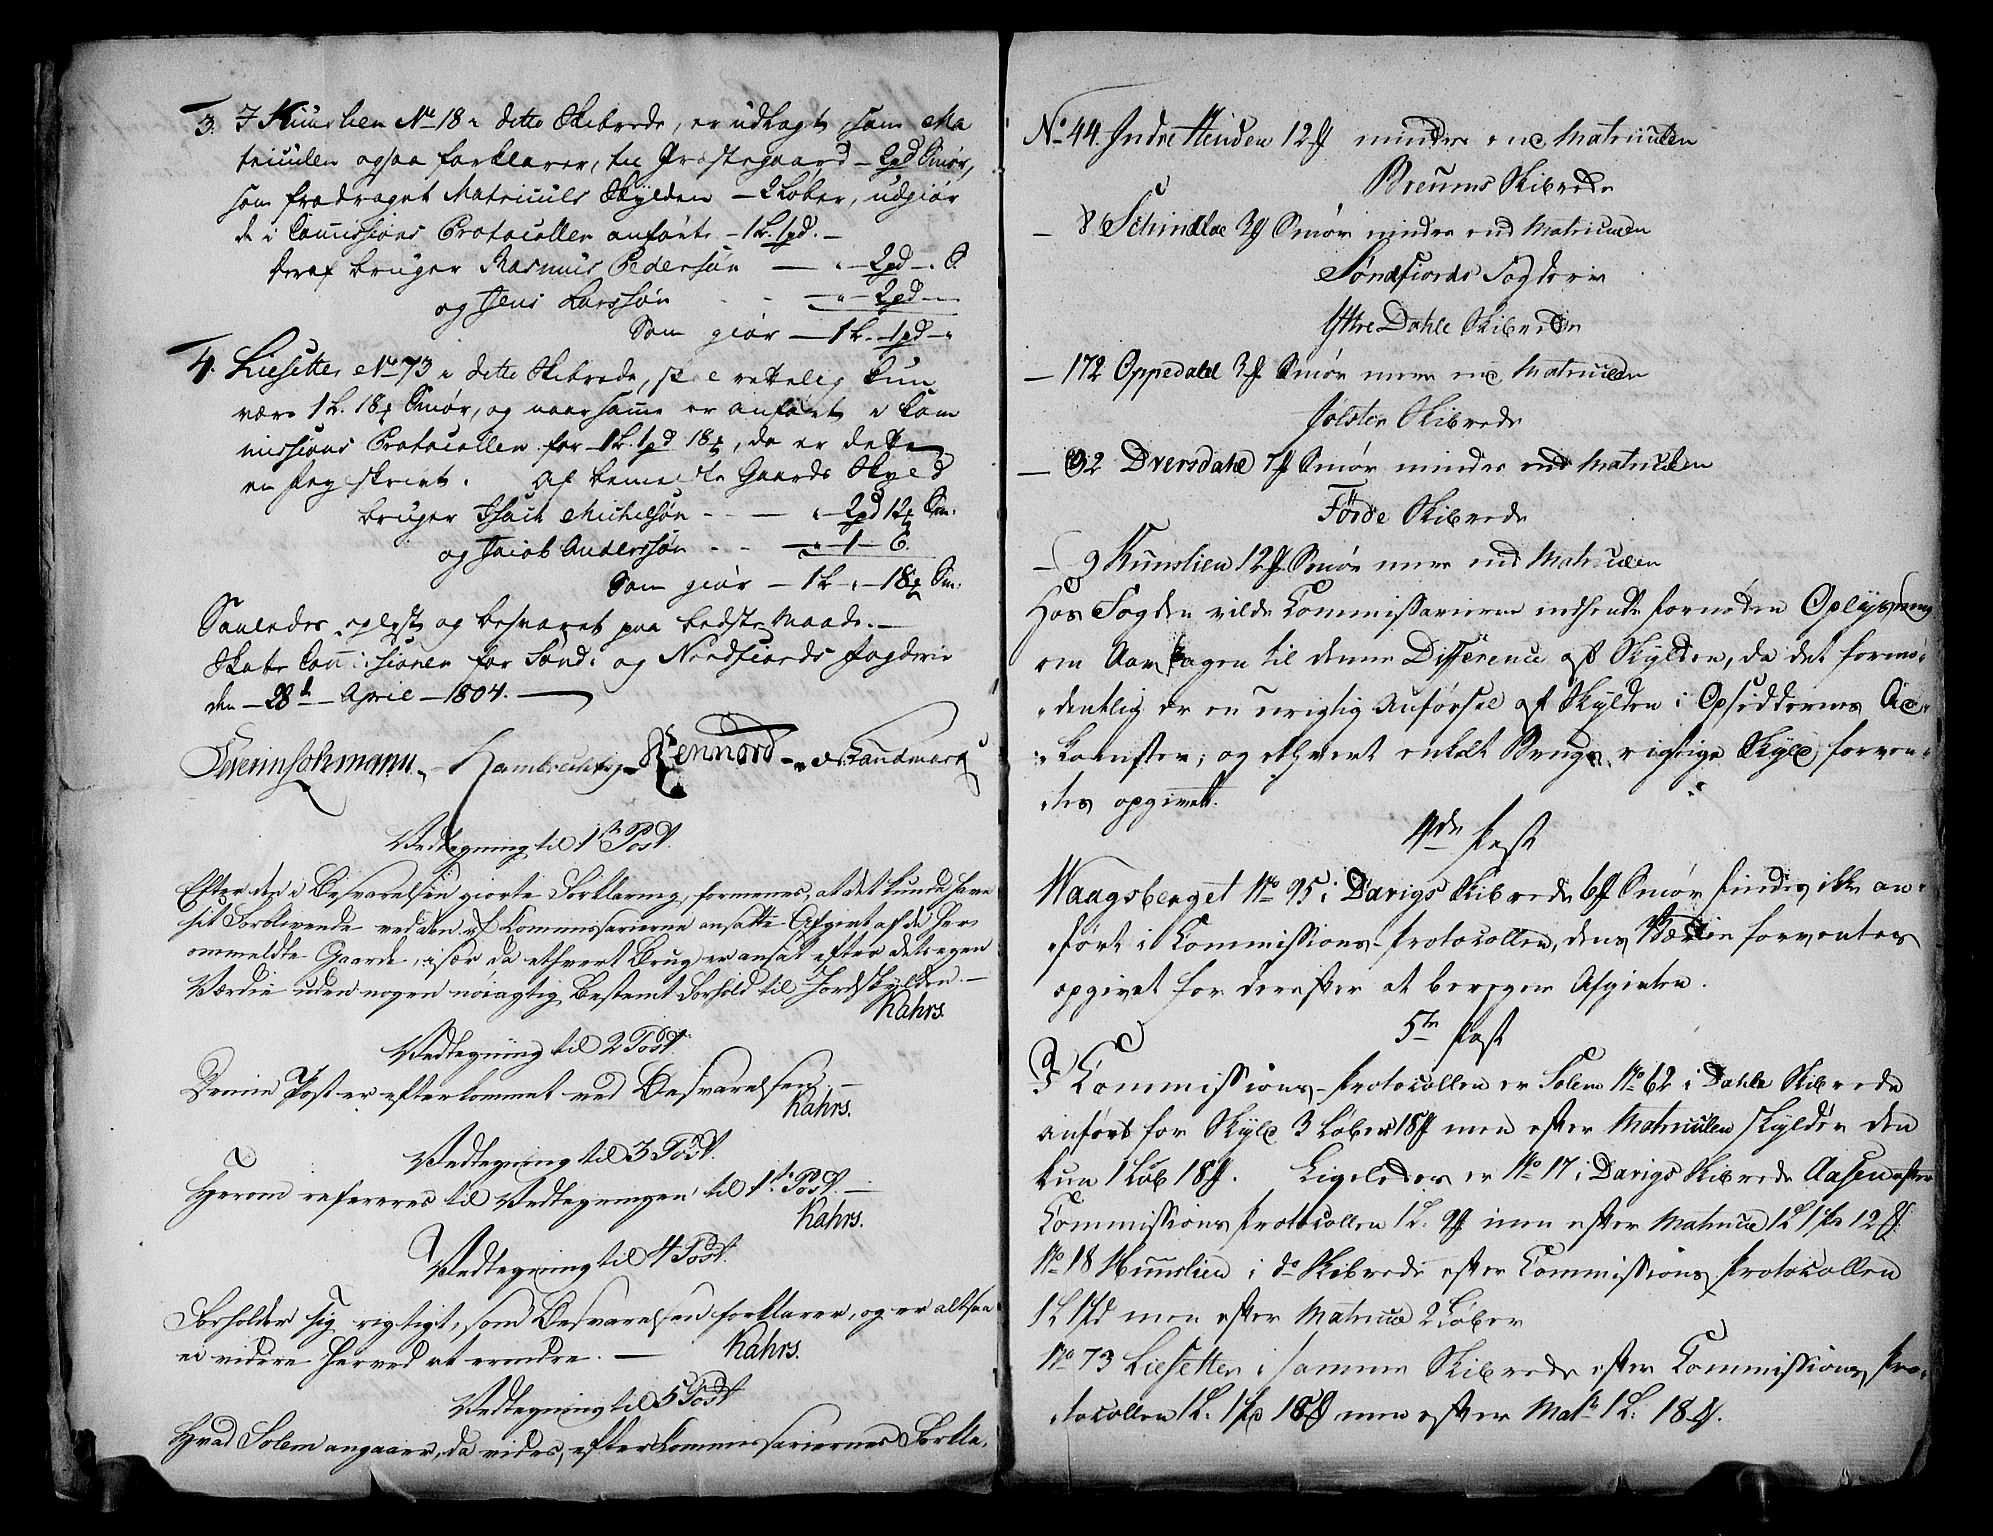 3. I Kunslien No 18 i dette Skibrede, er udlagt som Ma
triculen ogsaa forklarer, til Præstegaard – 2pd Smør,
som fradraget Matriculs Skylden – 2 Løber, udgiør
de i Commissions Protocollen anførte – 1L. 1pd. –
Deraf bruger Rasmus Pedersøn — " – 2pd – " S.
og Jens Larssøn - - " – 2pd –
Som giør — 1L. – 1pd – "
4. Liesetter No 73 i dette Skibrede, skal rettelig kun
være 1L. 18 Smør, og naar samme er anført i Com
missions Protocollen for 1L. 1pd 18, da er dette
en Fejlskrivt. Af bemelte Gaards Skyld
bruger Isach Michelsøn - - — " 2pd 12 Sm:
og Jacob Anderssøn - - — " – 1 – 6.
Som giør – 1L – " – 18 Sm.
Saaledes oplyst og besvaret paa bedste Maade. –
Skatte Commissionen for Sønd- og Nordfiords Fogderie
den – 28d – April – 1804. —
Severin Lohmann. Hambro Rennord Landmark
Vedtegning til 1 Post.
Efter den i Besvarelsen giorte Forklaring, formenes, at det kunde have
sit Forblivende ved den af Kommissarierne ansatte Afgivt af de her
ommeldte Gaarde, især da ethvert Brug er ansat efter dets egen
Værdie uden nogen nøiagtig bestemt Forhold til Jordskylden. –
Kahrs.
Vedtegning til 2 Post.
Denne Post er efterkommet ved Besvarelsen. –
Kahrs.
Vedtegning til 3 Post.
Herom refereres til Vedtegningen til 1te Post. –
Kahrs.
Vedtegning til 4 Post.
Forholder sig rigtigt, som Besvarelsen forklarer, og er altsaa
ei videre herved at erindre. —
Kahrs.
Vedtegning til 5 Post
Hvad Solem angaaer, da vides, efter Kommissariernes Forkla-
No 44. Indre Henden 12 mindre end Matriculen
Breums Skibrede
– 8 Schindloe 3 Smør mindre end Matriculen
Søndfiords Fogderie
Yttre Dahle Skibrede
– 172 Oppedahl 3 Smør mere end Matriculen
Jølster Skibrede
– 92 Dversdahl 7 Smør mindre end Matriculen
Førde Skibrede
– 9 Kunslien 12 Smør mere end Matriculen
Hos Fogden vilde Commissarierne indhente fornøden Oplysning
om Aarsagen til denne Difference af Skylden, da det formo-
dentlig er en urigtig Anførsel af Skylden i Opsiddernes
og ethvert enkelt Brugs rigtige Skyld forven-
tes opgivet.
4de Post
Waagsberget No 95 i Davigs Skibrede 6 Smør findes ikke an-
ført i Commissions-Protocollen, dens Værdie forventes
opgivet for derefter at beregne Afgivten.
5te Post
I Commissions-Protocollen er Solem No 62 i Dahle Skibrede
anført for Skyld 3 Løber 18 men efter Matriculen skylder den
kun 1 Løb 18. Ligeledes er No 17 i Davigs Skibrede Aasen efter
Commissions Protocollen 1L. 9 men efter Matricul 1L 1pd 12.
No 18 Hunslien i do Skibrede efter Commissions Protocollen
1L 1pd men efter Matricul 2 Løber
No 73 Liesetter i samme Skibrede efter Commissions Pro-
tocollen 1L. 1pd 18 men efter Matr 1L. 18.